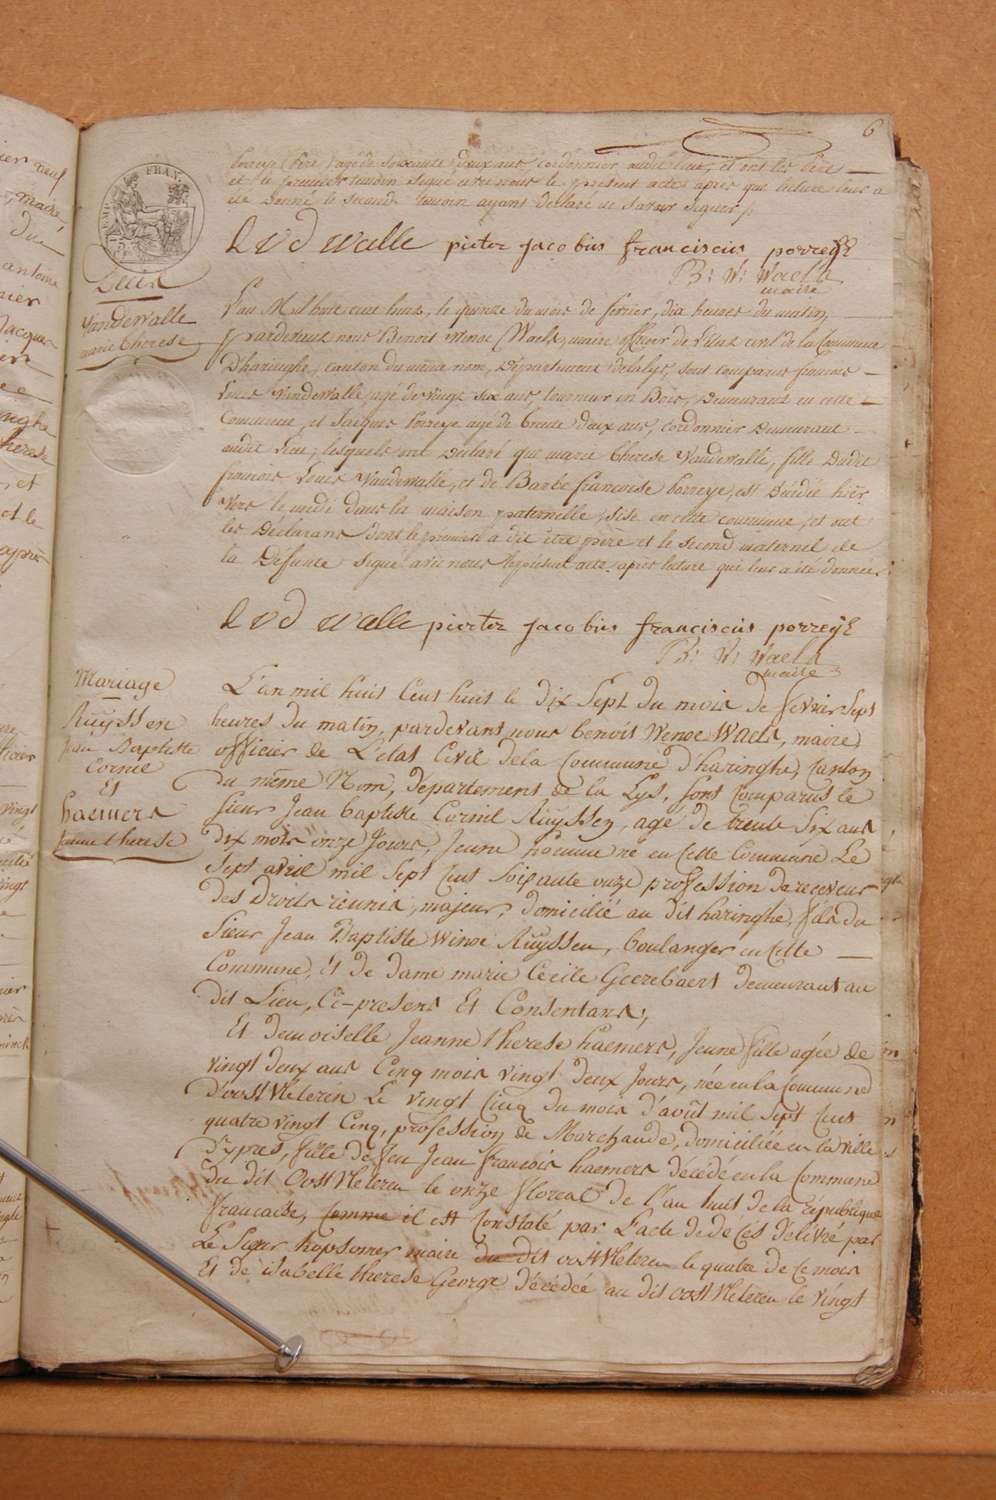 6
porreye (père) agé de soixante deux ans cordonnier audit lieu, et ont les père
et le premier temoin signé avec nous le présent acte après que lecture leur a
été donné le second temoin ayant declaré ne savoir signer
L V D Walle pieter jacobus franciscus porreye
B: W: Waels
maire
Décès
Vandewalle
marie therese
L'an Mil huit cent huit, le quinze du mois de fevrier, dix heures du matin
pardevant nous Benoit Wenoc Waels, maire officier de l'état civil de la Commune
D'haringhe, canton du même nom, Département de la lys, sont comparus francois
Louis Vandewalle agé de vingt six ans, tourneur en Bois, Demeurant en cette
Commune, et Jacques Porreye agé de trente deux ans, cordonnier Demeurant
audit Lieu, lesquels ont Déclaré que marie therese Vandewalle, fille Dudit
francois Louis Vandewalle, et de Barbe francoise Porreye, est Décédée hier
vers le midi dans la maison paternelle, sise en cette commune, et ont
les Déclarans dont le premier a dit être père et le second maternel de
la Defunte signé avec nous le présent acte, après lecture qui leur a été donnée
L V D Walle pierter jacobus franciscus porreye
B: W: Waels
maire
Mariage
Ruyssen
Jean Baptiste
Cornil
Et
haemers
Jeanne therese
L'an mil huit Cent huit le dix sept du mois de fevrier sept
heures du matin, pardevant nous benoit Wenoc Waels, maire
officier de L'etat Civil de la Commune d'haringhe, Canton
du même Nom, Departement de la Lys, sont Comparus le
sieur Jean baptiste Cornil Ruyssen, agé de trente six ans
dix mois onze Jours, Jeune homme né en Cette Commune Le
sept avril mil sept Cent soixante onze profession de receveur
des droits reunis, majeur, domicilié au dit haringhe, fils du
sieur Jean Baptiste Winoc Ruyssen, boulanger en Cette
Commune, et de dame marie Cecile Geerebaert demeurant au
dit Lieu, Ci-presens Et Consentans,
Et demoiselle Jeanne therese haemers, Jeune fille agée de
vingt deux ans Cinq mois vingt deux Jours, née en la Commune
d'oostVleteren Le vingt Cinq du mois d'août mil sept Cent
quatre vingt Cinq, profession de Marchande, domiciliée en la ville
d'ypres, fille de feu Jean francois haemers décédé en la Commune
du dit OostVleteren le onze floreal de l'an huit de la république
francaise, Comme il est Constaté par L'acte de deces délivré par
Le Sieur hopsomer maire du dit oostVleteren le quatre de Ce mois
Et de isabelle therese George décédée au dit oostVleteren le vingt